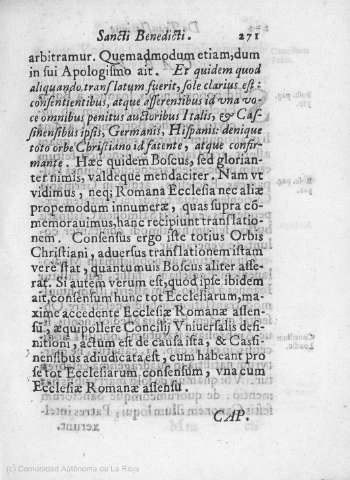 Sancti Benedicti. 271
arbitramur. Quemadmodum etiam, dum
in sui Apologismo ait. Et quidem quod
aliquando translatum fuerit, sole clarius est:
consentientibus, atque asserentibus id vna vo-
ce omnibus penitus auctoribus Italis, & Cas-
sinensibus ipsis, Germanis, Hispanis: denique
toto orbe Christiano id fatente, atque confir-
mante. Hæc quidem Boscus, sed glorian-
ter nimis, valdeque mendaciter. Nam vt
vidimus, neq; Romana Ecclesia nec aliæ
propemodum innumeræ, quas supra cō-
memorauimus, hanc recipiunt translatio-
nem. Consensus ergo iste totius Orbis
Christiani, aduersus translationem istam
vere stat, quantumuis Boscus aliter asse-
rat. Si autem verum est, quod ipse ibidem
ait, consensum hunc tot Ecclesiarum, ma-
xime accedente Ecclesiæ Romanæ assen-
su, æquipollere Concilij Vniuersalis defi-
nitioni, actum est de causa ista, & Cassi-
nensibus adiudicata est, cum habeant pro
se tot Ecclesiarum consensum, vna cum
Ecclesiæ Romanæ assensu.
CAP.
(c) Comunidad Autónoma de La Rioja